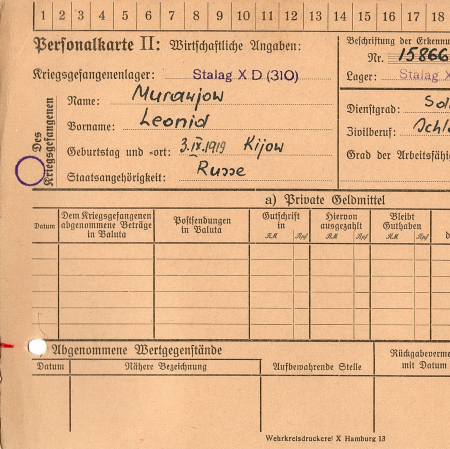 1 2 3 4 5 6 7 8 9 10 11 12 13 14 15 16 17 18
Personalkarte II: Wirtschaftliche Angaben:
Beschriftung der Erkennu
Nr. 15866
Kriegsgefangenenlager: Stalag X D (310)
Lager: Stalag X
Des Kriegsgefangenen
Name: Murawjow
Vorname: Leonid
Geburtstag und -ort: 3.IV.1919 Kijow
Staatsangehörigkeit: Russe
Dienstgrad: Sol
Zivilberuf: Schl
Grad der Arbeitsfähi
a) Private Geldmittel
Datum
Dem Kriegsgefangenen abgenommene Beträge in Valuta
Postsendungen in Valuta
Gutschrift in
RM Rpf
Hiervon ausgezahlt
RM Rpf
Bleibt Guthaben
RM Rpf
d
Abgenommene Wertgegenstände
Datum
Nähere Bezeichnung
Aufbewahrende Stelle
Rückgabeverme
mit Datum
Wehrkreisdruckerei X Hamburg 13